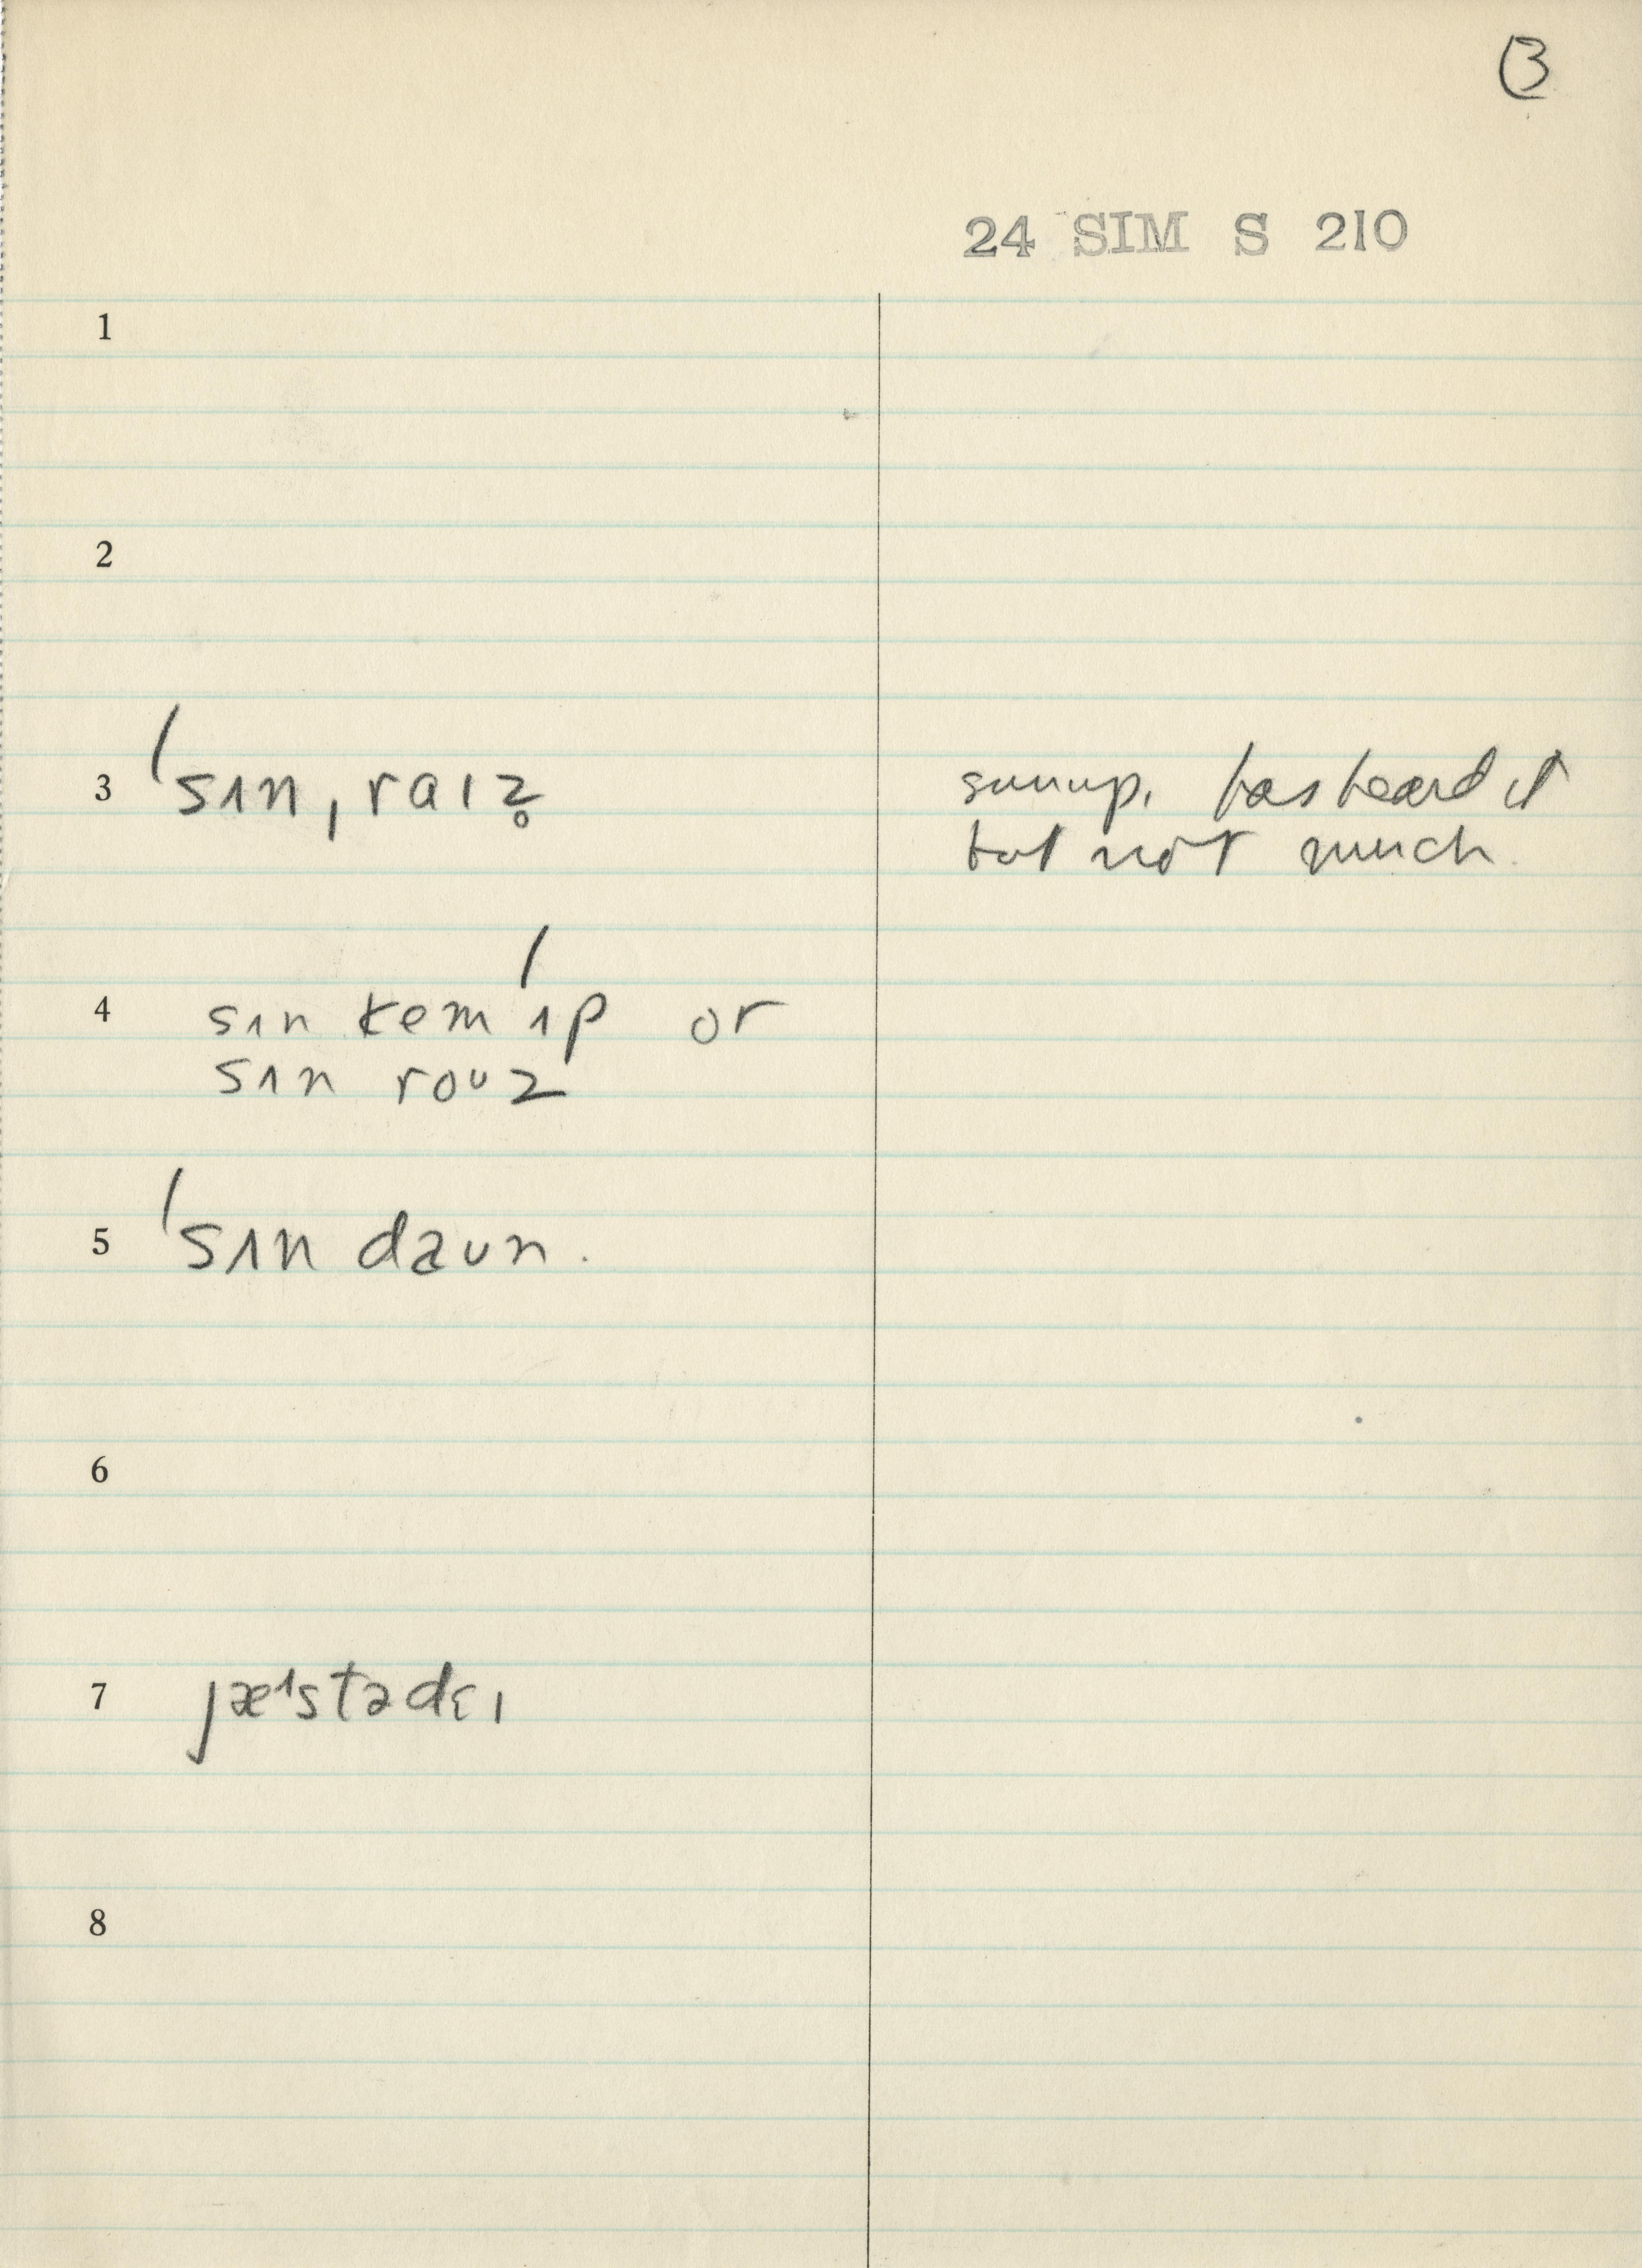 3
24 SIM S 210
1
2
3 ˈsʌn ˌraɪz̥ sunup. has heard it
but not much
4 sʌn kem ˈʌp or
sʌn roʊz
5 ˈsʌn daʊn.
6
7
8